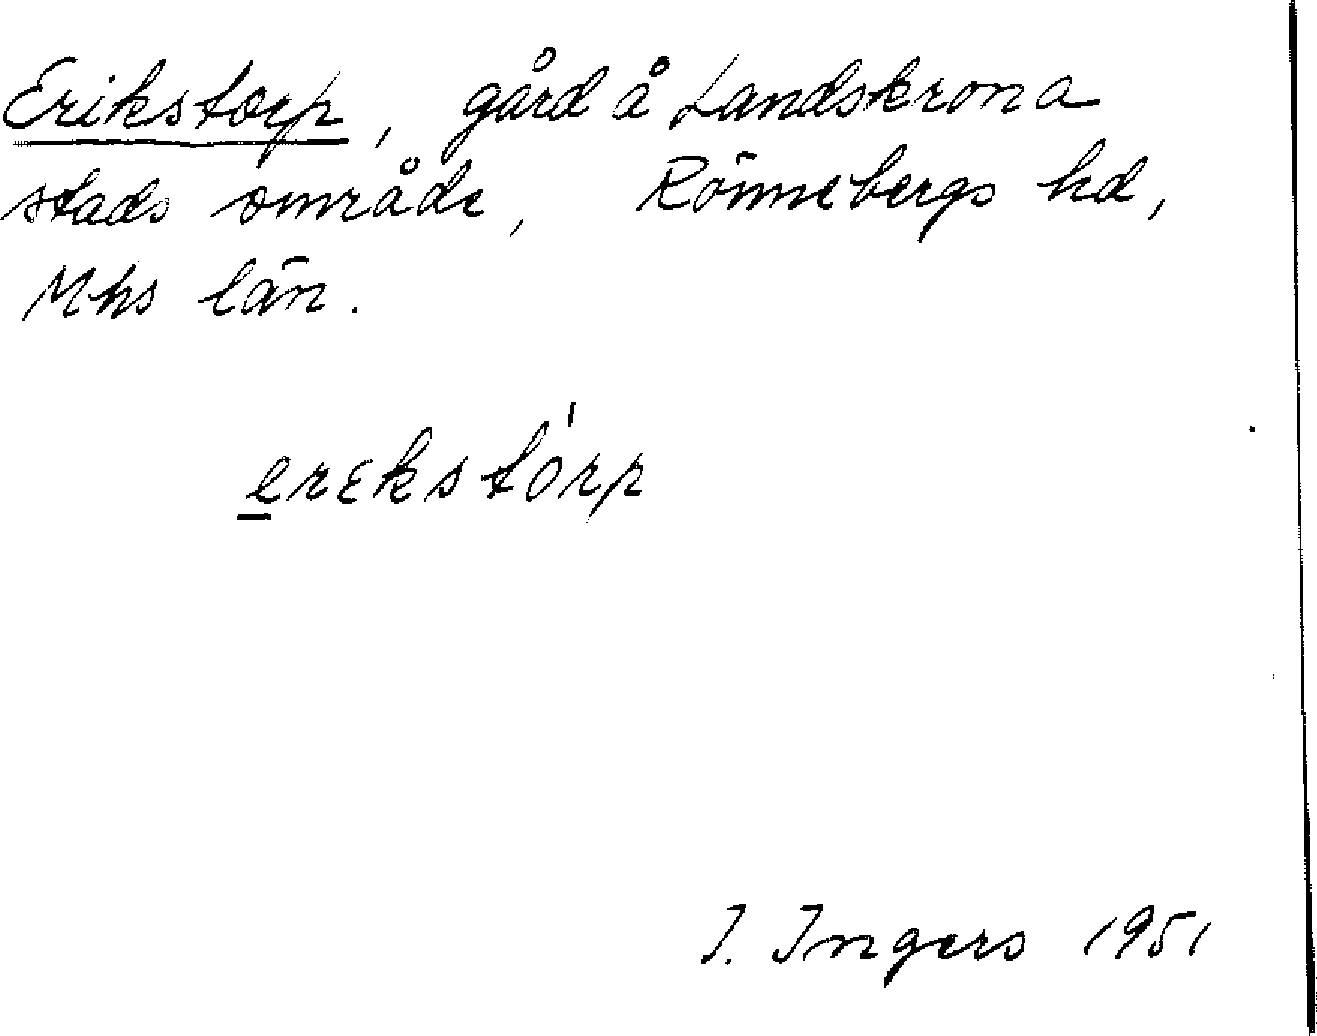 Erikstorp, gård å Landskrona
stads område, Rönnebergs hd,
Mhs län.
erɛkstórp
I. Ingers 1951